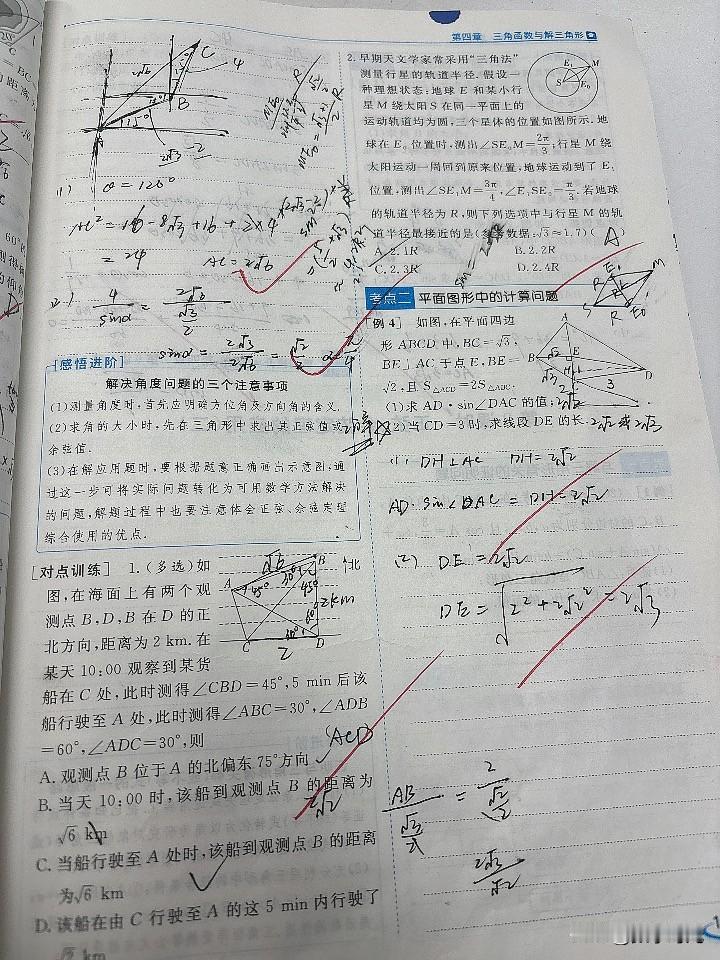 第四章 三角函数与解三角形
C
4
B
A
2√6
115°
2√3-2
(1) θ=120°
AC²=16-8√3+16+2×4
=24 AC=2√6
(2) 4/sinα = 2√6/(√3/2)
sinα = 2√3/2√6 = √2/2
[感悟进阶]
解决角度问题的三个注意事项
(1)测量角度时,首先应明确方位角及方向角的含义.
(2)求角的大小时,先在三角形中求出其正弦值或
余弦值.
(3)在解应用题时,要根据题意正确画出示意图,通
过这一步可将实际问题转化为可用数学方法解决
的问题,解题过程中也要注意体会正弦、余弦定理
综合使用的优点.
[对点训练] 1.(多选)如
图,在海面上有两个观
测点B,D,B在D的正
北方向,距离为2 km.在
某天10:00观察到某货
船在C处,此时测得∠CBD=45°,5 min后该
船行驶至A处,此时测得∠ABC=30°,∠ADB
=60°,∠ADC=30°,则
ACD
A.观测点B位于A的北偏东75°方向
B.当天10:00时,该船到观测点B的距离为
√6 km
2√2
C.当船行驶至A处时,该船到观测点B的距离
为√6 km
D.该船在由C行驶至A的这5 min内行驶了
√2 km
√6
B
北
A
45°
30°
45°
2km
60°
C
2
D
2.早期天文学家常采用“三角法”
测量行星的轨道半径.假设一
种理想状态:地球E和某小行
星M绕太阳S在同一平面上的
运动轨道均为圆,三个星体的位置如图所示.地
球在E₀位置时,测出∠SE₀M=2π/3;行星M绕
太阳运动一周回到原来位置,地球运动到了E₁
位置,测出∠SE₁M=3π/4,∠E₁SE₀=π/3.若地球
的轨道半径为R,则下列选项中与行星M的轨
道半径最接近的是(参考数据:√3≈1.7)( )
A
A.2.1R B.2.2R
C.2.3R D.2.4R
E₁
M
S
E₀
考点二 平面图形中的计算问题
[例4] 如图,在平面四边
形ABCD中,BC=√3,
BE⊥AC于点E,BE=
√2,且S△ACD=2S△ABC.
(1)求AD·sin∠DAC的值;2√2
(2)当CD=3时,求线段DE的长.2√2或2√3
A
B
E
D
3
(1) DH⊥AC DH=2√2
AD·sin∠DAC=DH=2√2
(2) DE=2√2
DE=√(2²+2√2²)=2√3
AB/(√3/2) = 2/(√2/2)
2√3/√2